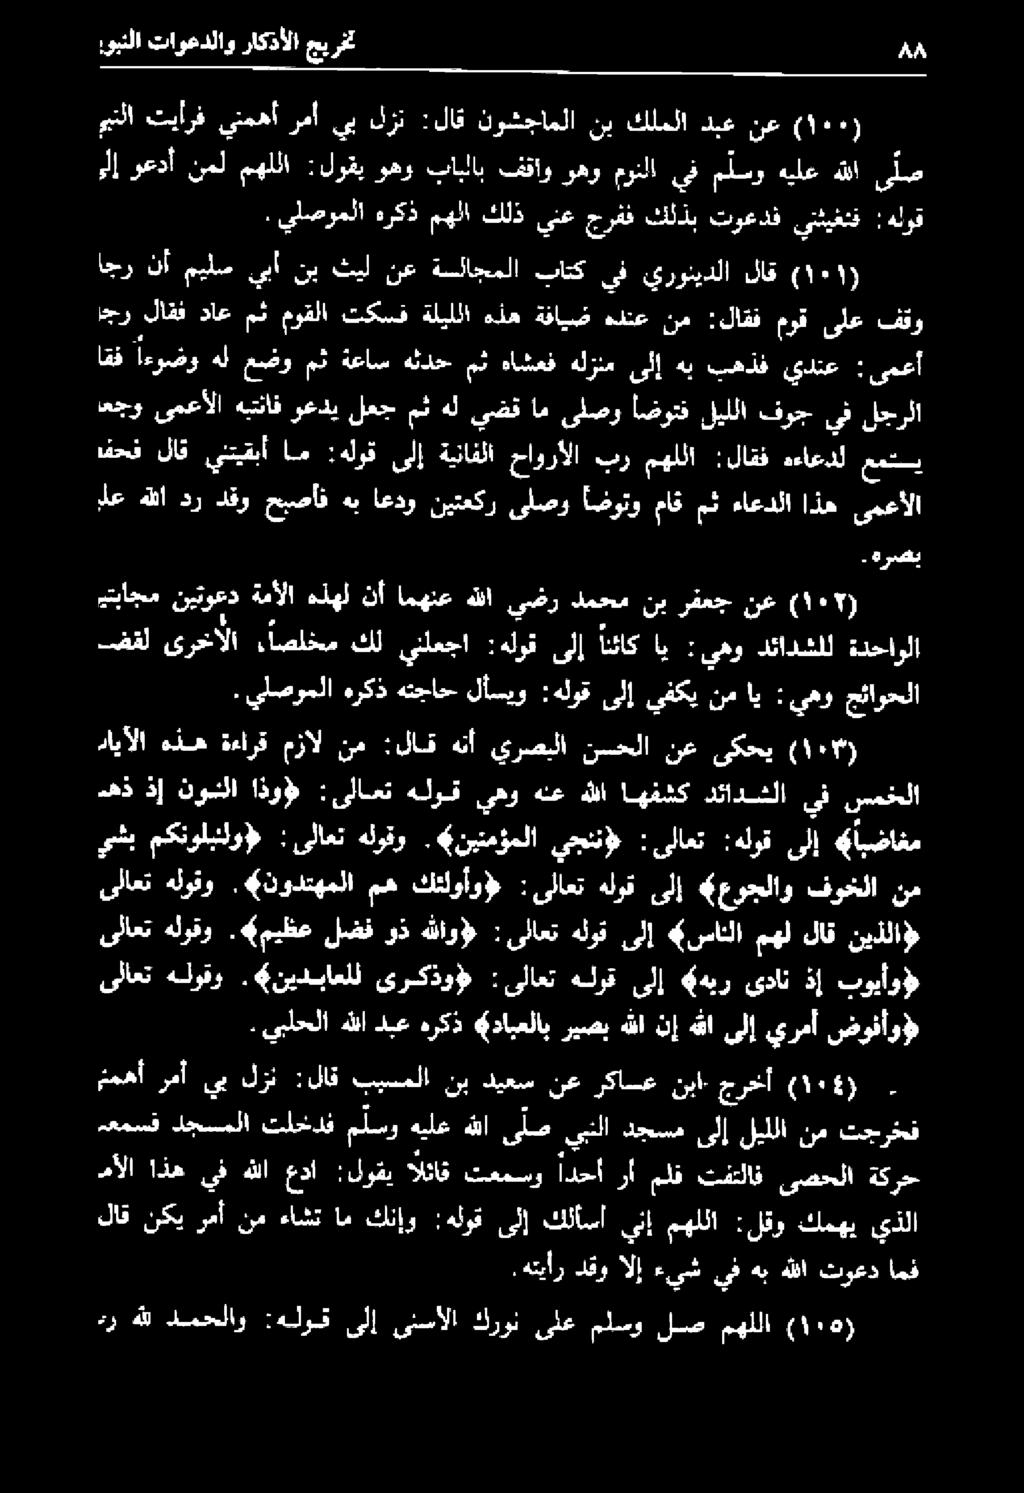 ٨٨ تخريج الأذكار والدعوات
(١٠٠) عن عبد الملك بن الماجشون قال: نزل بي أمر أهمني فرأيت
صلّى الله عليه وسلّم في النوم وهو واقف بالباب وهو يقول: اللهم لمن أدعو
قوله: فتغيثني فدعوت بذلك ففرج عني ذلك الهم ذكره الموصلي.
(١٠١) قال الدينوري في كتاب المجالسة عن ليث بن أبي سليم أن
وقف على قوم فقال: من عنده ضيافة هذه الليلة فسكت القوم ثم عاد فقال
أعمى: عندي فذهب به إلى منزله فعشاه ثم حدثه ساعة ثم وضع له وضوءاً
الرجل في جوف الليل فتوضأ وصلى ما قضي له ثم جعل يدعو فانتبه الأعمى
يستمع لدعاءه فقال: اللهم رب الأرواح الفانية إلى قوله: ما أبقيتني قال
الأعمى هذا الدعاء ثم قام وتوضأ وصلى ركعتين ودعا به فأصبح وقد رد الله
بصره.
(١٠٢) عن جعفر بن محمد رضي الله عنهما أن لهذه الأمة دعوتين
الواحدة للشدائد وهي: يا كائناً إلى قوله: اجعلني لك مخلصاً، الأخرى
الحوائج وهي: يا من يكفي إلى قوله: ويسأل حاجته ذكره الموصلي.
(١٠٣) يحكى عن الحسن البصري أنه قال: من لازم قراءة هذه
الخمس في الشدائد كشفها الله عنه وهي قوله تعالى: ﴿وذا النون إذ
مغاضباً﴾ إلى قوله: تعالى: ﴿ننجي المؤمنين﴾. وقوله تعالى: ﴿ولنبلونكم
من الخوف والجوع﴾ إلى قوله تعالى: ﴿وأولئك هم المهتدون﴾. وقوله تعالى
﴿الذين قال لهم الناس﴾ إلى قوله تعالى: ﴿والله ذو فضل عظيم﴾. وقوله تعالى
﴿وأيوب إذ نادى ربه﴾ إلى قوله تعالى: ﴿وذكرى للعابدين﴾. وقوله تعالى
﴿وأفوض أمري إلى الله إن الله بصير بالعباد﴾ ذكره عبد الله الحلبي.
(١٠٤) أخرج ابن عساكر عن سعيد بن المسيب قال: نزل بي أمر
فخرجت من الليل إلى مسجد النبي صلّى الله عليه وسلّم فدخلت المسجد
حركة الحصى فالتفت فلم أر أحداً وسمعت قائلاً يقول: ادع الله في هذا
الذي يهمك وقل: اللهم إني أسألك إلى قوله: وإنك ما تشاء من أمر يكن قال
فما دعوت الله به في شيء إلا وقد رأيته.
(١٠٥) اللهم صل وسلم على نورك الأسنى إلى قوله: والحمد لله